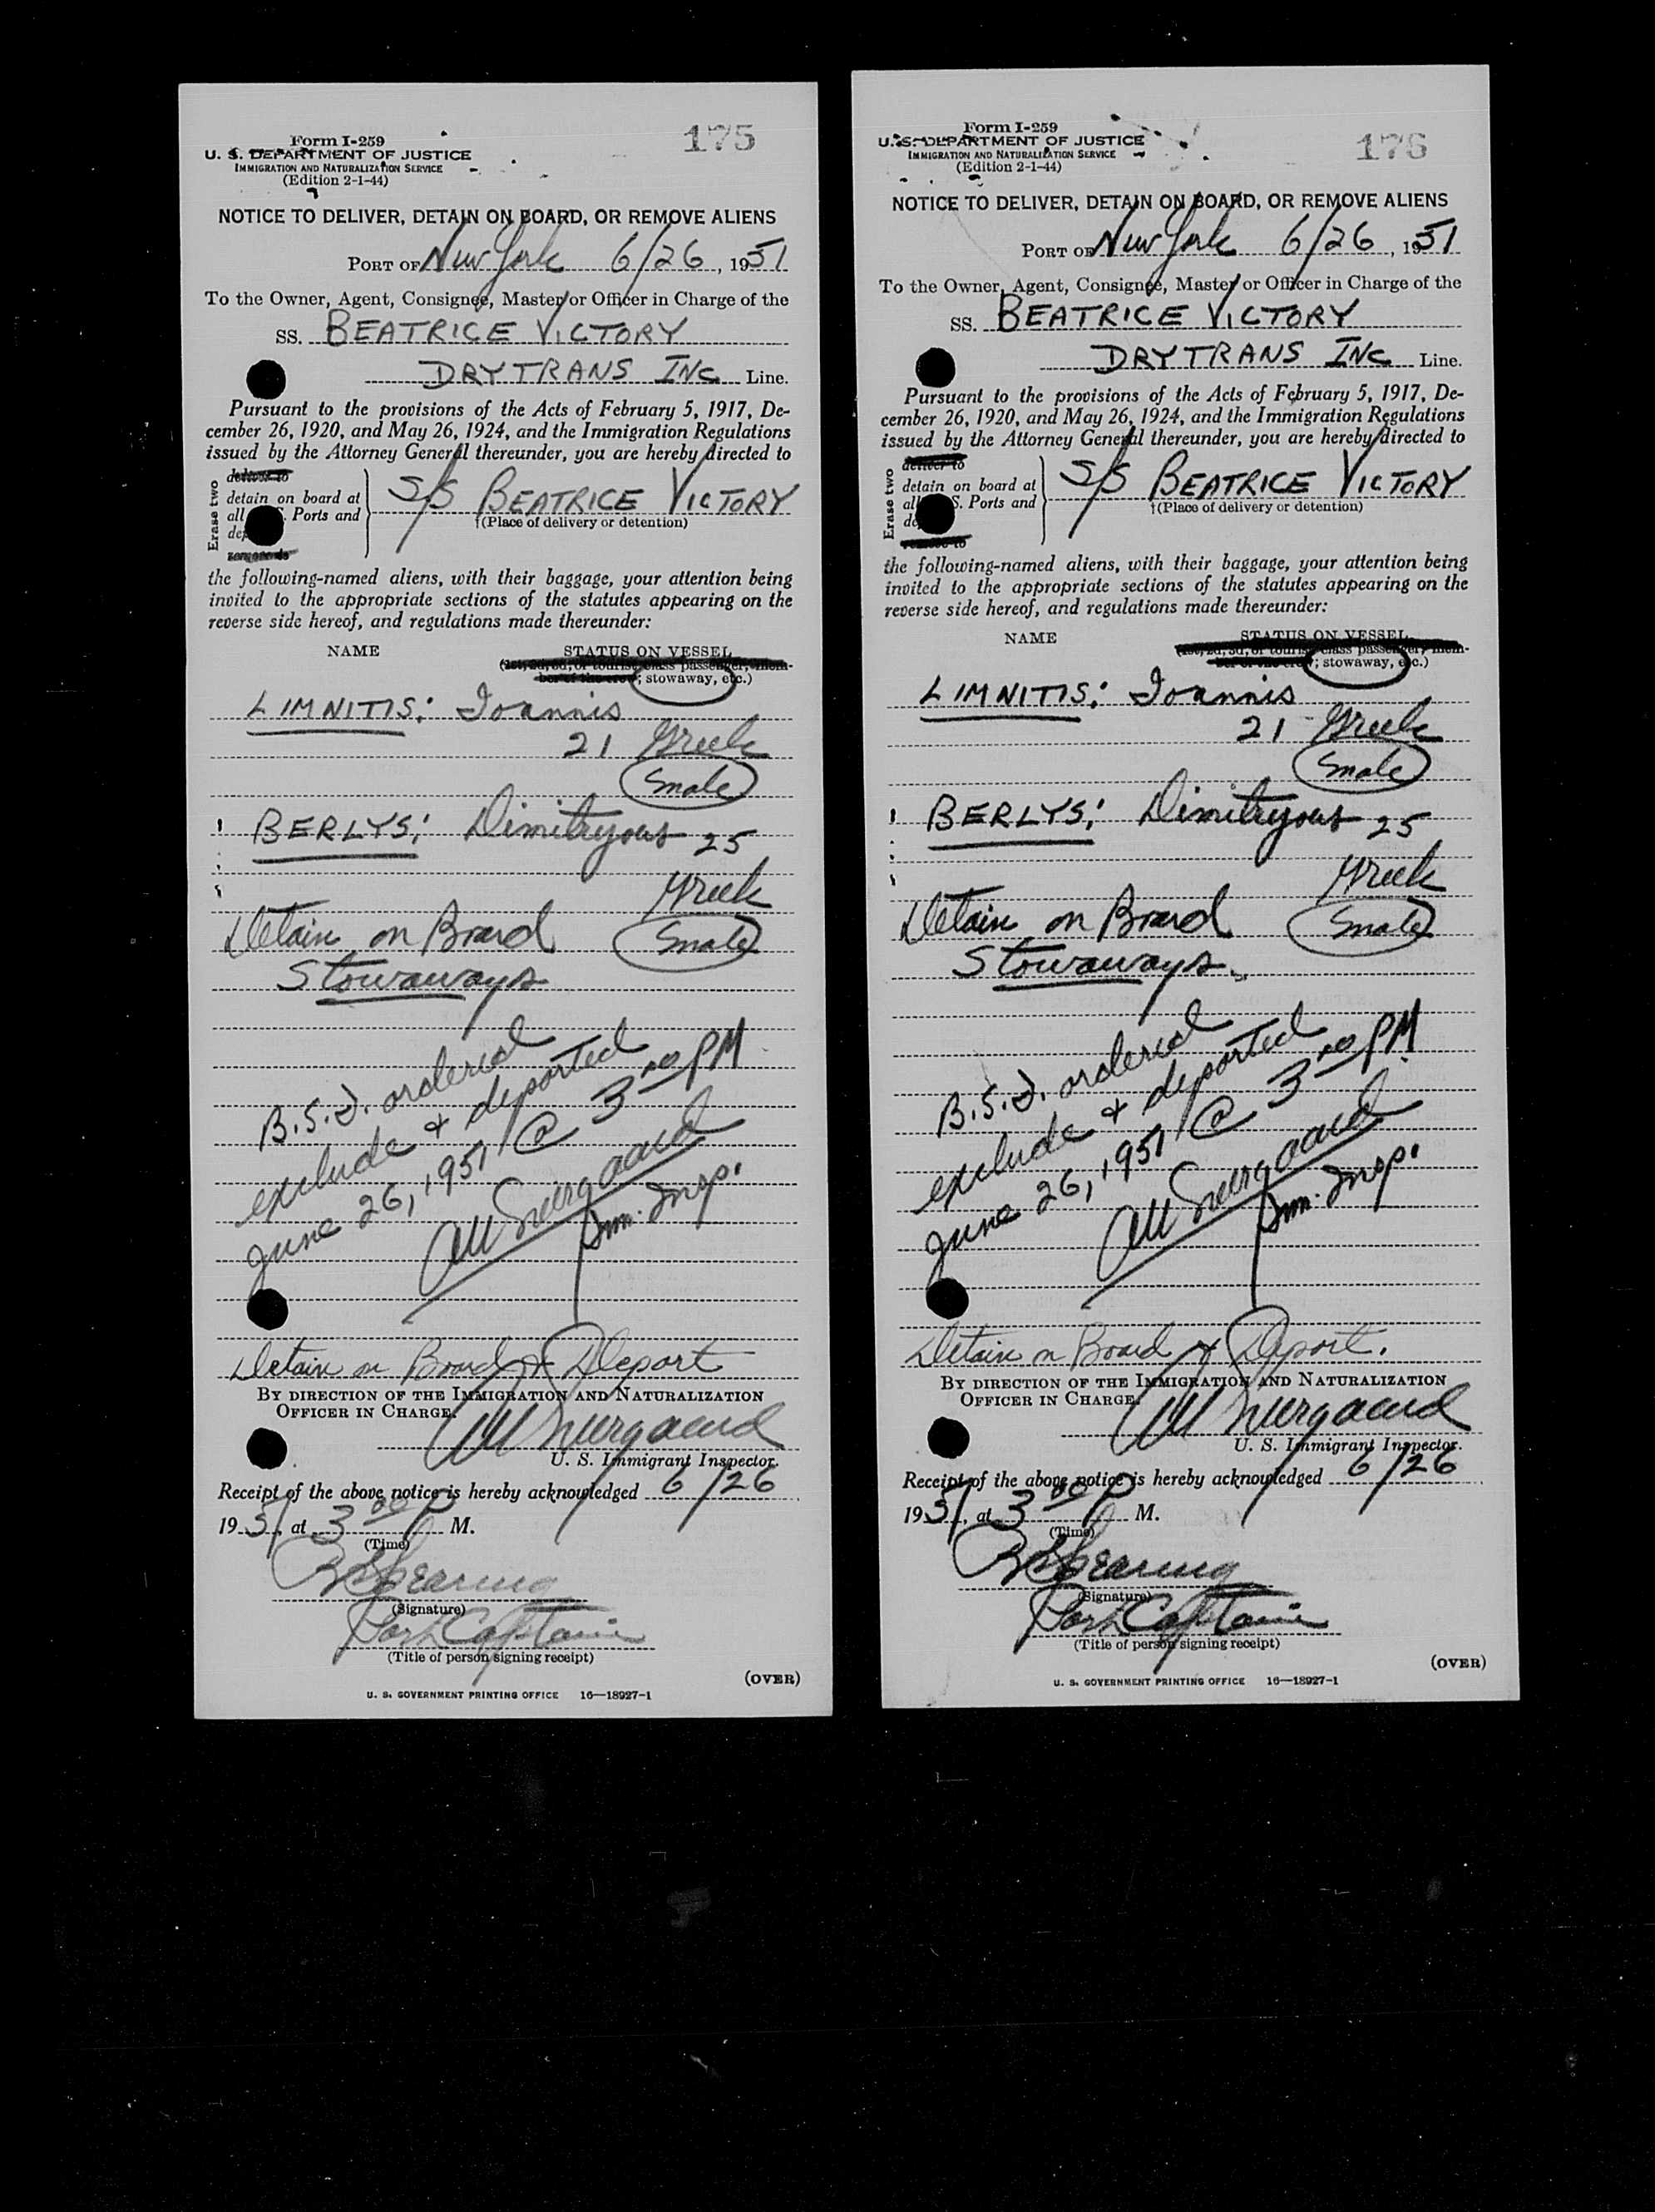 175
Form I-259
U. S. DEPARTMENT OF JUSTICE
IMMIGRATION AND NATURALIZATION SERVICE
(Edition 2-1-44)
NOTICE TO DELIVER, DETAIN ON BOARD, OR REMOVE ALIENS
PORT OF New York 6/26, 1951
To the Owner, Agent, Consignee, Master or Officer in Charge of the
SS. BEATRICE VICTORY
DRYTRANS INC Line.
Pursuant to the provisions of the Acts of February 5, 1917, De-
cember 26, 1920, and May 26, 1924, and the Immigration Regulations
issued by the Attorney General thereunder, you are hereby directed to
Erase two
deliver to
detain on board at
all S. Ports and
S/S BEATRICE VICTORY
†(Place of delivery or detention)
the following-named aliens, with their baggage, your attention being
invited to the appropriate sections of the statutes appearing on the
reverse side hereof, and regulations made thereunder:
NAME STATUS ON VESSEL
(1st, 2d, 3d, or tourist class passenger, mem-
ber of the crew; stowaway, etc.)
LIMNITIS: Ioannis
21 Greek
male
BERLYS: Dimitryous 25
Greek
Detain on Board male
Stowaways
B.S.I. ordered
exclude & deported
June 26, 1951 @ 3 00 PM
Imm. Insp.
Detain on Board & Deport
BY DIRECTION OF THE IMMIGRATION AND NATURALIZATION
OFFICER IN CHARGE.
U. S. Immigrant Inspector.
Receipt of the above notice is hereby acknowledged 6/26
1951, at 3 00 P M.
(Time)
(Signature)
Port Captain
(Title of person signing receipt)
(OVER)
U. S. GOVERNMENT PRINTING OFFICE 16—18927-1
176
Form I-259
U. S. DEPARTMENT OF JUSTICE
IMMIGRATION AND NATURALIZATION SERVICE
(Edition 2-1-44)
NOTICE TO DELIVER, DETAIN ON BOARD, OR REMOVE ALIENS
PORT OF New York 6/26, 1951
To the Owner, Agent, Consignee, Master or Officer in Charge of the
SS. BEATRICE VICTORY
DRYTRANS INC Line.
Pursuant to the provisions of the Acts of February 5, 1917, De-
cember 26, 1920, and May 26, 1924, and the Immigration Regulations
issued by the Attorney General thereunder, you are hereby directed to
Erase two
deliver to
detain on board at
S. Ports and
remove to
S/S BEATRICE VICTORY
†(Place of delivery or detention)
the following-named aliens, with their baggage, your attention being
invited to the appropriate sections of the statutes appearing on the
reverse side hereof, and regulations made thereunder:
NAME STATUS ON VESSEL
(1st, 2d, 3d, or tourist class passenger, mem-
ber of the crew; stowaway, etc.)
LIMNITIS: Ioannis
21 Greek
male
BERLYS: Dimitryous 25
Greek
Detain on Board male
Stowaways.
B.S.I. ordered
exclude & deported
June 26, 1951 @ 3 00 PM
Imm. Insp.
Detain on Board & Deport.
BY DIRECTION OF THE IMMIGRATION AND NATURALIZATION
OFFICER IN CHARGE.
U. S. Immigrant Inspector.
Receipt of the above notice is hereby acknowledged 6/26
1951, at 3 00 P M.
(Time)
(Signature)
Port Captain
(Title of person signing receipt)
(OVER)
U. S. GOVERNMENT PRINTING OFFICE 16—18927-1